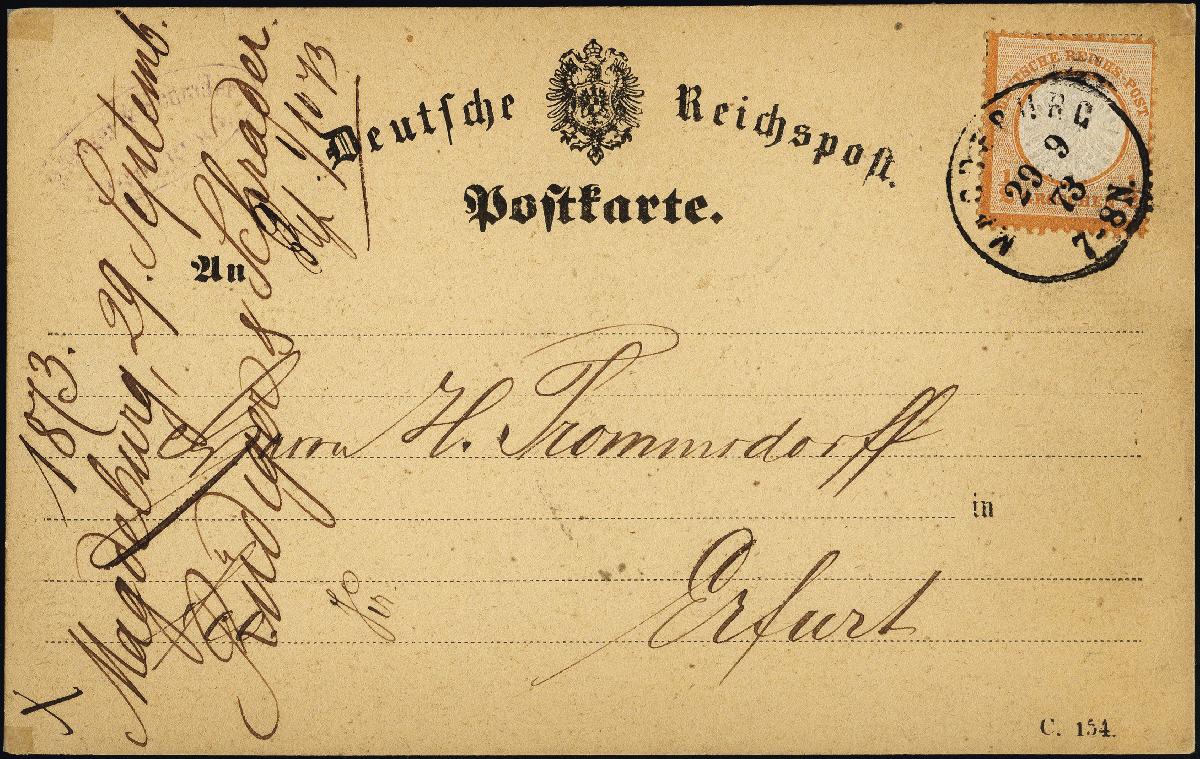 Deutsche Reichspost.
Postkarte.
DEUTSCHE REICHS-POST
MAGDEBURG
29 9
73
7-8N.
An
Herrn H. Trommsdorff
in
Erfurt
C. 154.
1873.
Magdeburg, 29. Septemb.
Rüdiger & Schrader.
1/10 73
X